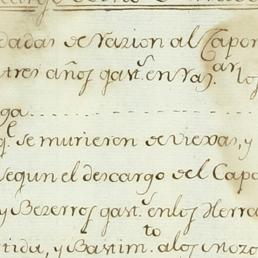 dadas de razion al Capor
tres años gast.s en raz.
ga
q.e se murieron de viexas, y
segun el descargo del Capo
y Bezerros gast.s en los Herra
tida, y Bastim.to a los mozo